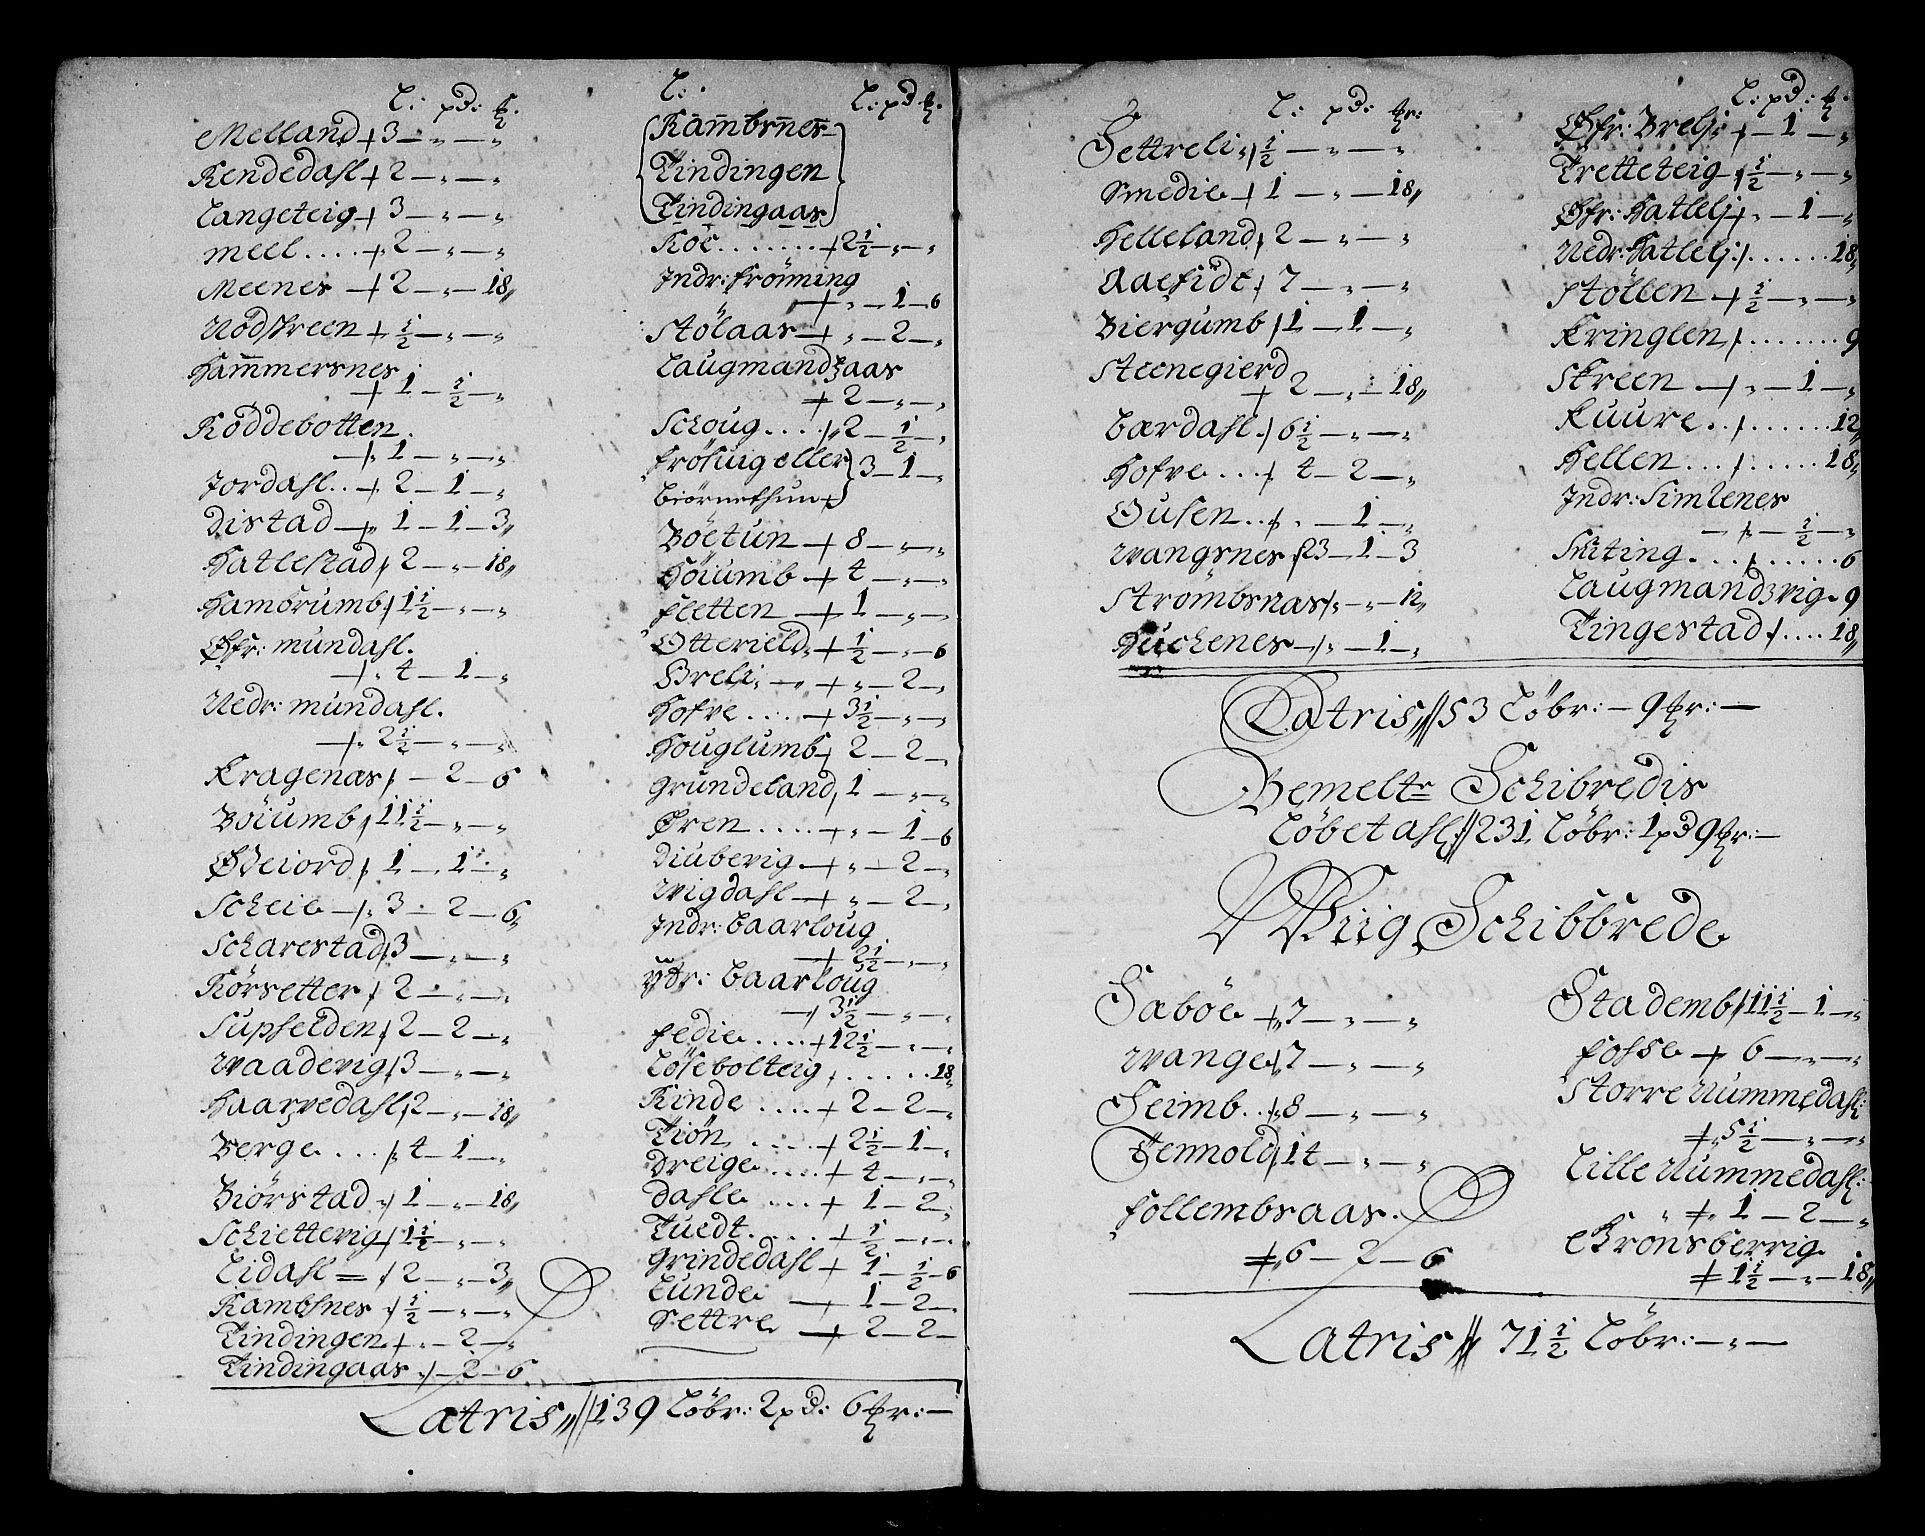 L: pd: ꝷ.
Melland + 3 — „ — „
Rendedahl + 2 — „ — „
Langeteig + 3 — „ — „
Mell .... + 2 — „ — „
Meenes + 2 — „ — 18„
Nødstreen + ½ — „ — „
Hammersnes
+ 1 — ½ — „
Røddebotten
+ 1 — „ — „
Jordahl .. + 2 — 1 — „
Distad + 1 — 1 — 3„
Hatlestad + 2 — „ — 18„
Hambrumb + 1½ — „ — „
Øfr: Mundahl.
+ 4 — 1 — „
Nedr: Mundahl.
+ 2½ — „ — „
Kragenæs + — 2 — 6
Bøiumb + 11½ — „ — „
Ødeiord + 1 — 1 — „
Scheie + 3 — 2 — 6„
Scharestad + 3 — „ — „
Kørsetter + 2 — „ — „
Suphelden + 2 — 2 — „
Waadevig + 3 — „ — „
Haarvedahl + 2 — „ — 18„
Berge .... + 4 — 1 — „
Biørstad + 1 — „ — 18„
Schiettevig + 1½ — „ — „
Lidahl = + 2 — „ — 3„
Rambsnes + ½ — „ — „
Tindingen + „ — 2 — „
Tindingaas + — 2 — 6
L: L: pd ꝷ.
Rambsnes
Tindingen
Tindingaas
Roe ....... + 2½ — „ — „
Indr: Frønning
+ „ — 1 — 6
Stølaas + „ — 2 — „
Laugmandzaas
+ 2 — „ — „
Schoug .... + 2 — ½ — „
Frøhuig eller } 3 — 1 — „
Biørnethun +
Bøetun + 8 — „ — „
Høiumb + 4 — „ — „
Fletten + 1 — „ — „
Otterield + ½ — „ — 6
Breli — + „ — 2 — „
Hofve .... + 3½ — „ — „
Houglumb + 2 — 2 — „
Grundeland + 1 — „ — „
Øren ..... + „ — 1 — 6
Diubevig + „ — 2 — „
Wigdahl + „ — 2 — „
Indr: Baarloug
+ 2½ — „ — „
Ydr: Baarloug
+ 3½ — „ — „
Fedie .... + 12½ — „ — „
Løsebolteig ....... 18„
Rinde .... + 2 — 2 — „
Tiøn ..... + 2½ — 1 — „
Dreige .... + 4 — „ — „
Dahle .... + 1 — 2 — „
Tuedt ..... + ½ — „ — „
Grindedahl + 1 — ½ — 6
Lunde + 1 — 2 — „
Settre + 2 — 2 —
Latris // 139 Løbr: 2 pd: 6 ꝷr: —
L: pd: ꝷr:
Settreli + ½ — „ — „
Smedie + 1 — „ — 18„
Helleland + 2 — „ — „
Aafidt + 7 — „ — „
Biergumb + 1 — 1 — „
Steenegierd
+ 2 — „ — 18„
Bærdahl + 6½ — „ — „
Hofve ... + 4 — 2 — „
Ousen .. + „ — 1 — „
Wangsnes + 23 — 1 — 3
Strømbsnas + „ — „ — 12„
Huchenes + „ — 1 — „
L: pd: ꝷ.
Øfr: Breli + — 1 — „
Tretteteig + ½ — „ — „
Øfr: Hatleli + „ — 1 — „
Nedr: Hatleli + ...... 18„
Støllen + ½ — „ — „
Kringlen + ....... 9
Skreen + „ — 1 — „
Kuure .. + ...... 12„
Hellen ... + ..... 18„
Indr: Simlenes
— + — ½ — „
Skiting .... + ...... 6
Laugmandzvig . 9
Tingestad + .... 18„
Latris // 53 Løbr: — 9 ꝷr: —
Bemelte Schibredis
Løbetahl // 231 Løbr: 1 pd 9 ꝷr: —
Wiig Schibbrede
Sæbøe + 7 — „ — „
Wange + 7 — „ — „
Seimb .. + 8 — „ — „
Tennold + 14 — „ — „
Follembsaas.
+ 6 — 2 — 6
Stademb + 11½ — 1 — „
Fosse + 6 — „ — „
Storre Nummedahl:
+ 5½ — „ — „
Lille Nummedahl:
„ + 1 — 2 — „
Ekronsberrig
+ 1½ — „ — 18„
Latris // 71½ Løbr: — „ —